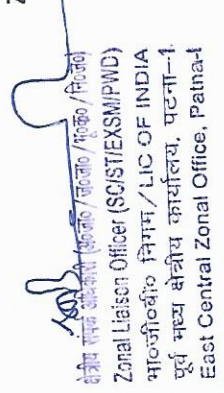 क्षेत्रीय संपर्क अधिकारी (अ०जा०/ज०जा०/भू०क०/नि०ज०)
Zonal Liaison Officer (SC/ST/EXSM/PWD)
भा०जी०बी० निगम/LIC OF INDIA
पूर्व मध्य क्षेत्रीय कार्यालय, पटना-1
East Central Zonal Office, Patna-1